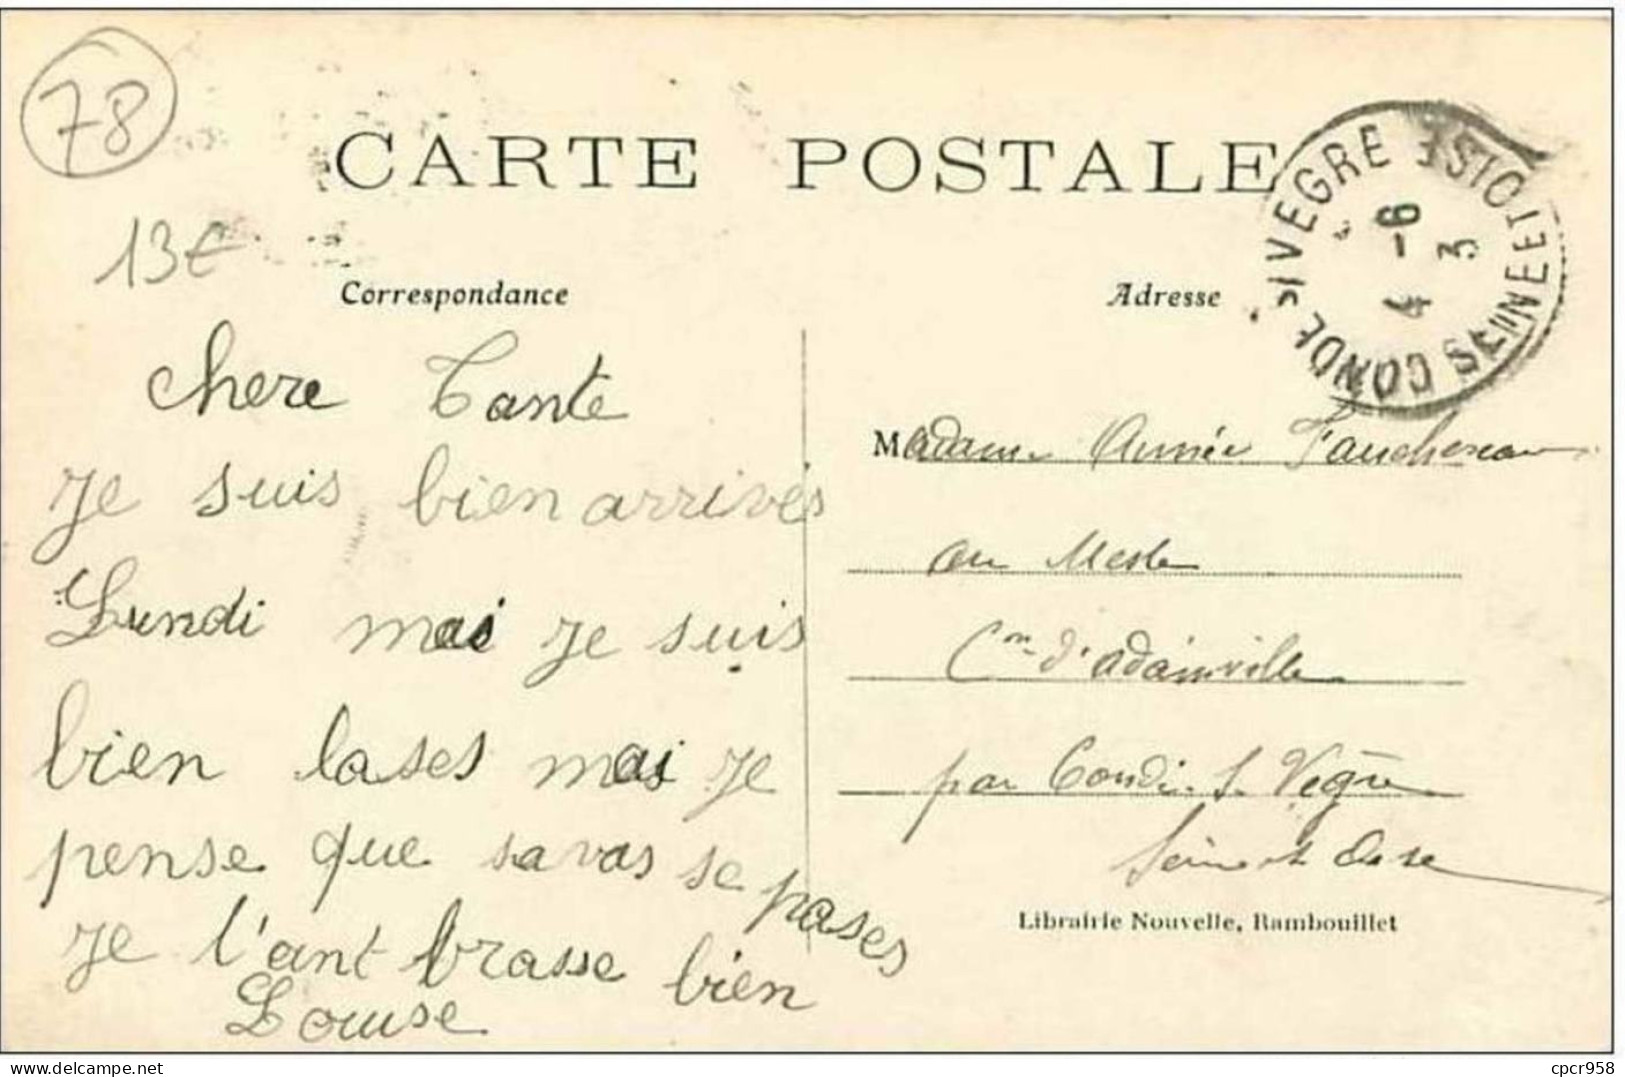 78
13€
CARTE POSTALE
Correspondance
Adresse
CONDE S/ VEGRE SEINE ET OISE
6
3
4
chere Tante
Je suis bien arrivés
Lundi mai je suis
bien lases mai je
pense que sa vas se pases
Je l'ant brasse bien
Louise
Madame Aimée Fauchereau
au Mesle
Cne d'adainville
par Condé. S. Vègre
Seine et Oise
Librairie Nouvelle, Rambouillet
cpcr958